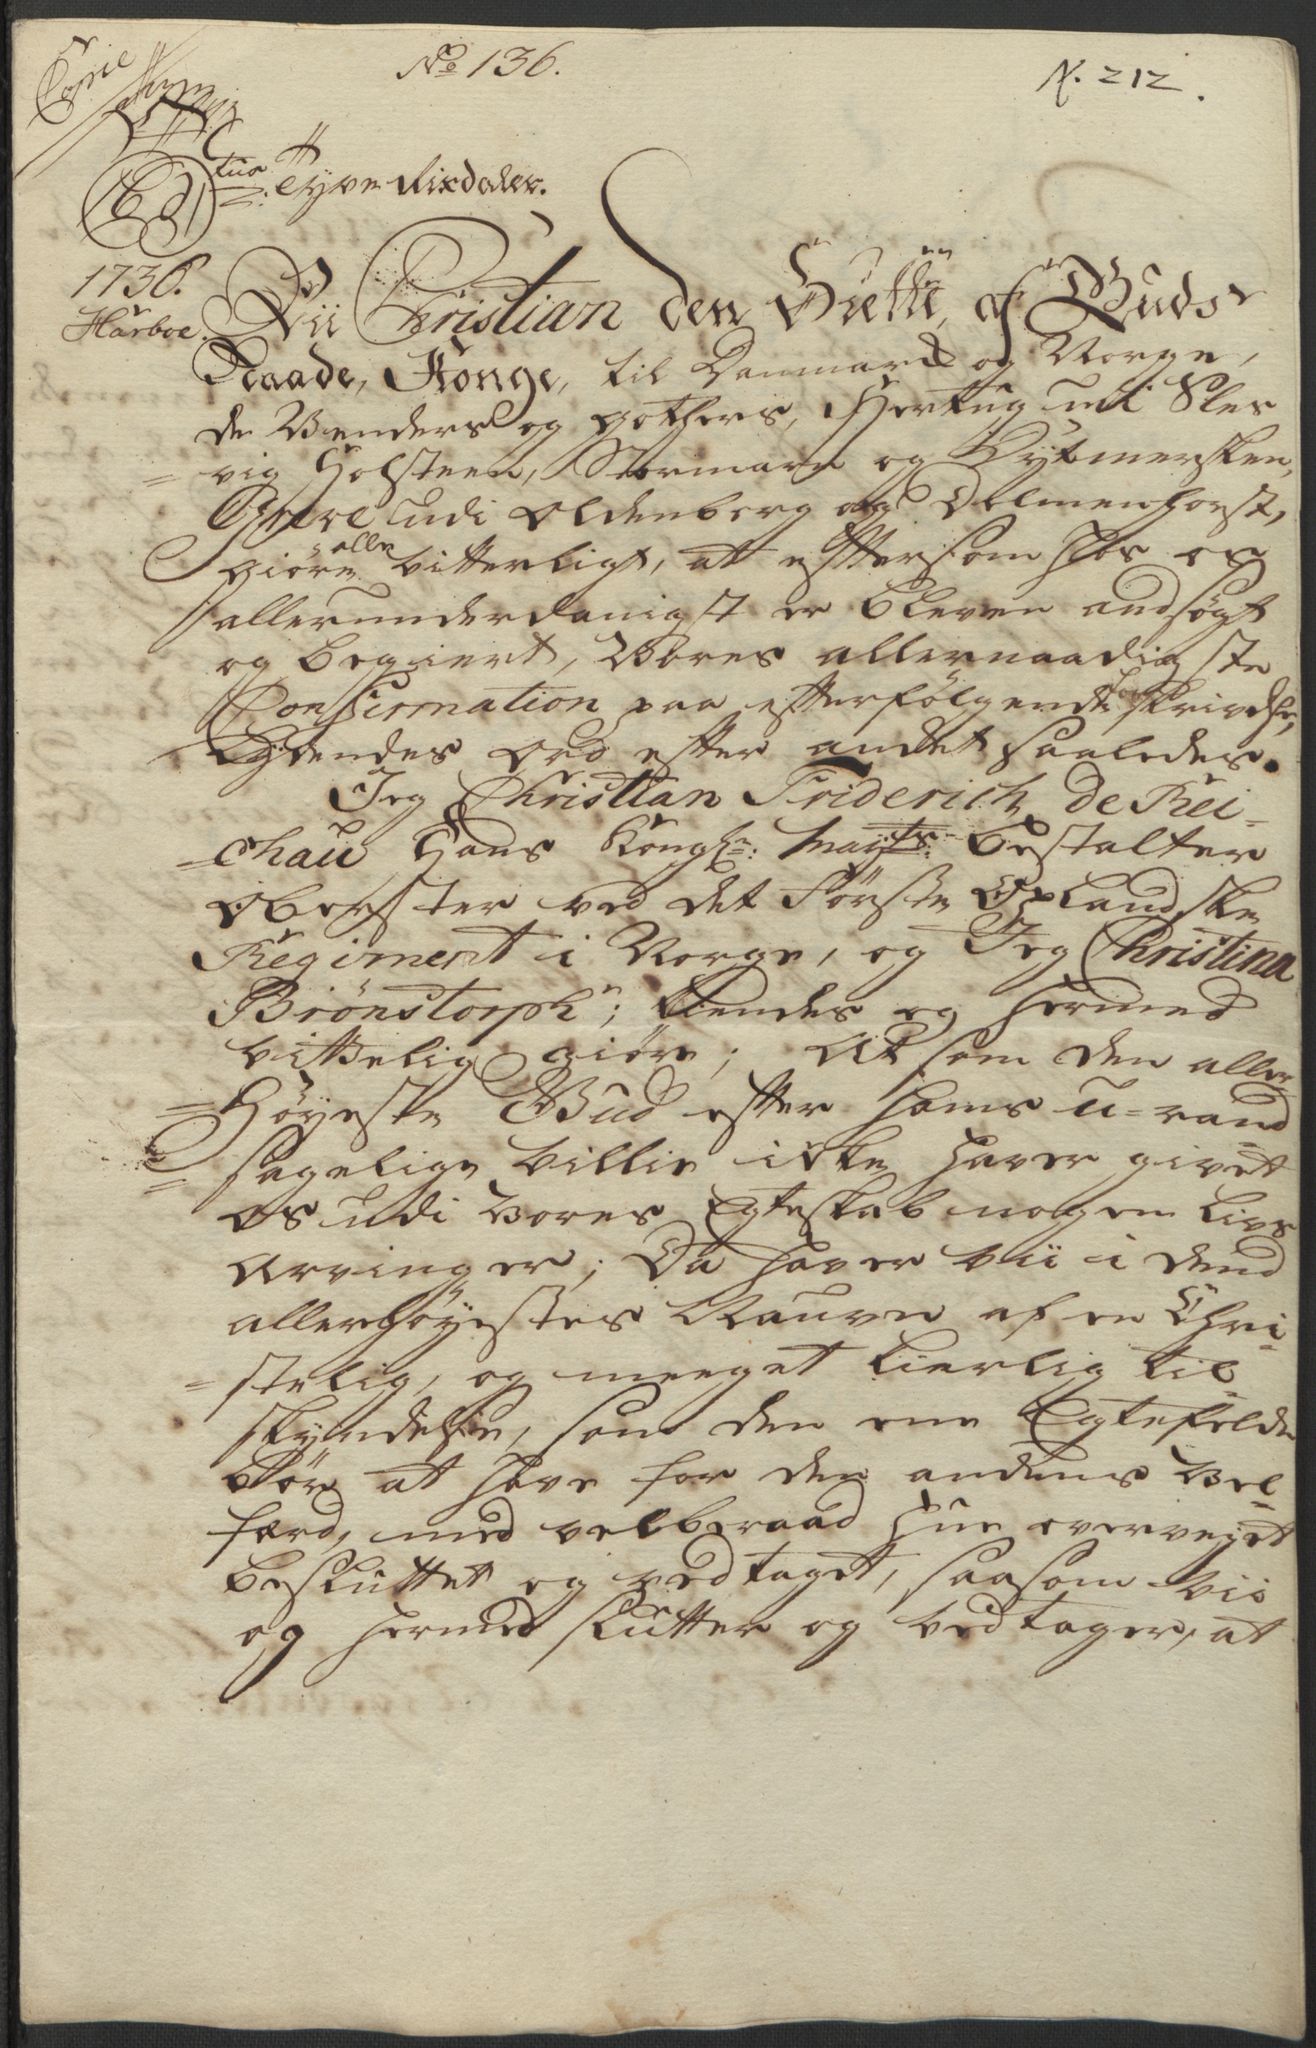 No 136.
N. 212.
Copie
C6
tus Tyve Rixdaler.
1736.
Harboe.
Vii Christian den Siette, af Guds
Naade, Konge, til Danmark og Norge,
de Venders og Gothers, Hertug udi Sles
=vig Holsteen, Stormarn og Dytmersken,
Greve udi Oldenborg og Delmenhorst,
giøre alle vitterligt, at eftersom hos os
allerunderdanigst er bleven andsøgt
og begiert, Vores allernaadigste
Confirmation paa efterfølgende
Lydendes Ord efter andet saaledes.
Jeg Christian Friderich de Rei-
=chau Hans Kongl: Mayts: bestalter
Oberster ved det Første Oplandske
Regiment i Norge, og Jeg Christina
Brönstorph; kiendes og hermed
vitterlig giøre; At som den aller-
=Høyeste Gud efter hans u-rand
=sagelige Villie ikke haver givet
os udi Vores Egteskab nogen Livs
Arvinger; Da haver Vii i dend
allerhøyestes Naufn af en Chri-
=stelig, og meeget kierlig til
skyndelse, som den ene Egtefelde
bør at have for den andens Vel-
færd, med velberaad Hue overveyet
besluttet og vedtaget, saasom Vii
og hermed slutter og vedtager, at